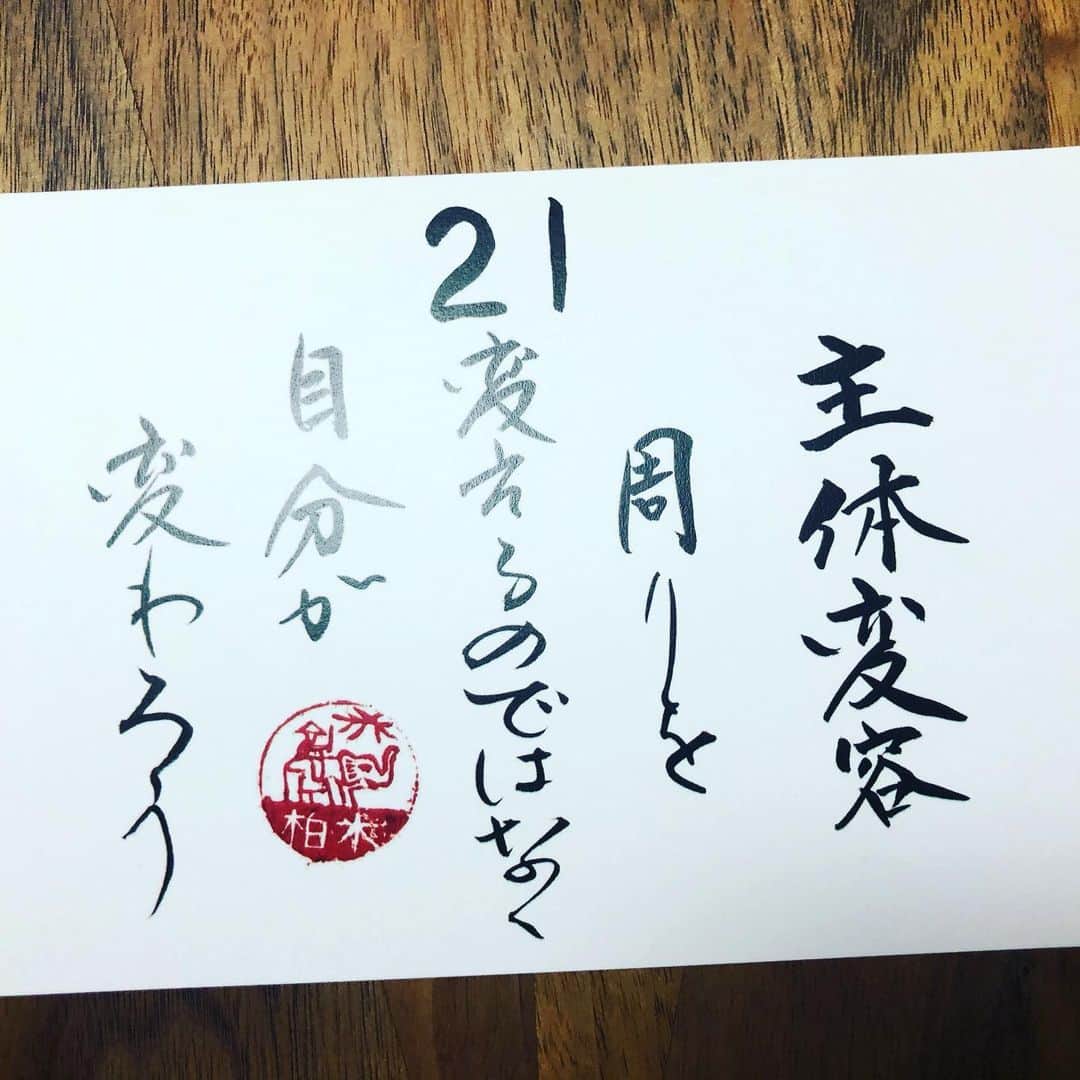 21
主体変容
周りを
変えるのではなく
自分が
変わろう
柏木